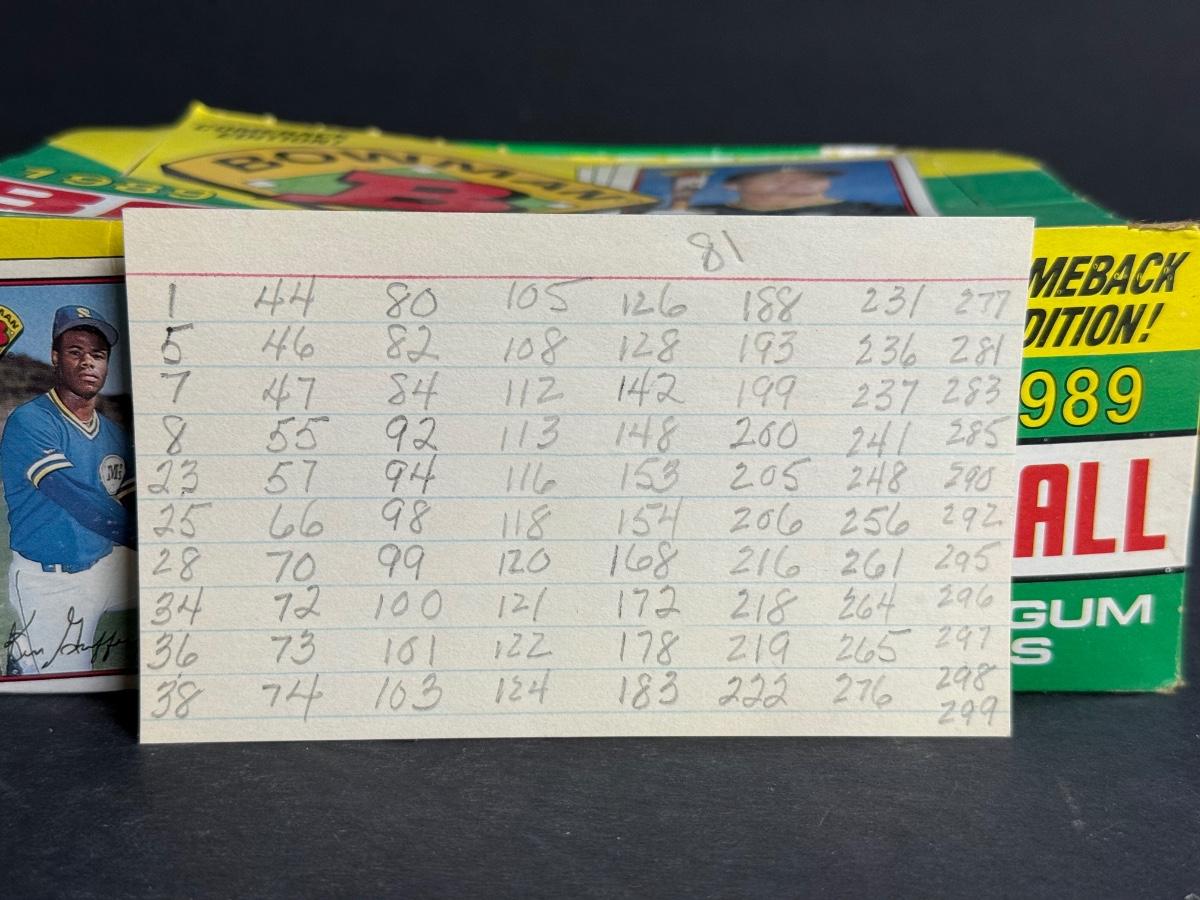 COMEBACK
EDITION!
1989
BOWMAN
B
81
1 44 80 105 126 188 231 277
5 46 82 108 128 193 236 281
7 47 84 112 142 199 237 283
8 55 92 113 148 200 241 285
23 57 94 116 153 205 248 290
25 66 98 118 154 206 256 292
28 70 99 120 168 216 261 295
34 72 100 121 172 218 264 296
36 73 101 122 178 219 265 297
38 74 103 124 183 222 276 298
299
MEBACK
DITION!
989
ALL
GUM
S